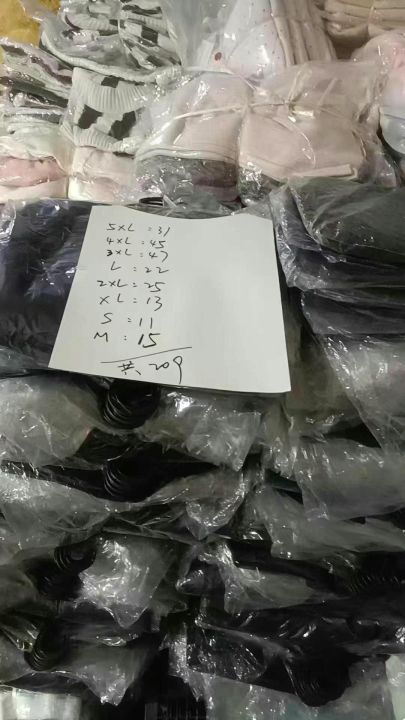 5XL = 31
4XL = 45
3XL = 47
L = 22
2XL = 25
XL = 13
S = 11
M = 15
共、209